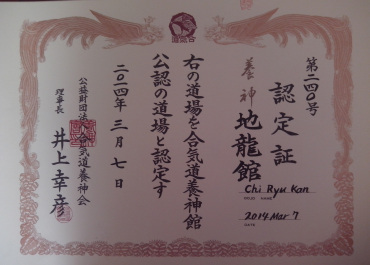 第二四〇号
認定証
養神
地龍館
Chi Ryu Kan
2014 Mar 7
DATE
右の道場を合気道養神館
公認の道場と認定す
二〇一四年三月七日
公益財団法人合気道養神会
理事長
井上幸彦